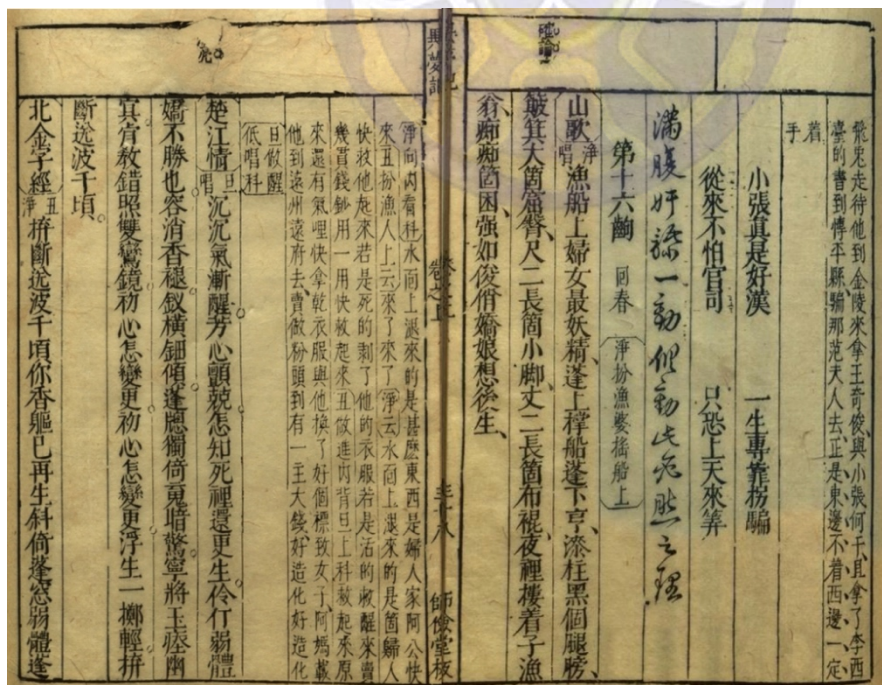 飛鬼走待他到金陵來拿王奇俊與小張何干且拿了李西
臺的書到博平縣騙那范夫人去正是東邊不着西邊一定
着手
小張真是好漢　一生專靠拐騙
從來不怕官司　只恐上天來筭
第十六齣　回春　淨扮漁婆搖船上
山歌　淨唱　漁船上婦女最妖精蓬上撐船蓬下亨漆柱黑個腿膀
皺箕大箇窟臀尺二長箇小脚丈二長箇布裩夜裡摟着子漁
翁痴痴箇困强如俊俏嬌娘想後生
卷之五
三十八
師儉堂板
淨向內看科水面上滚來的是甚麽東西是婦人家阿公快
來丑扮漁人上云來了來了淨云水面上滚來的是箇歸人
快救他起來若是死的剥了他的衣服若是活的救醒來賣
幾貫錢鈔用一用快救起來丑做進內背旦上科救起來原
來還有氣哩快拿乾衣服與他換了好個標致女子阿媽載
他到遠州遠府去賣做粉頭到有一主大錢好造化好造化
旦做醒
低唱科
楚江情　旦唱　沉沉氣漸醒芳心顫兢怎知死裡還更生伶仃弱體
嬌不勝也容消香褪釵橫鈿傾蓬牕獨倚魂暗驚寧將玉瘞幽
冥肯教錯照雙鸞鏡初心怎變更初心怎變更浮生一擲輕拚
斷送波千頃
北金字經　丑淨　拚斷送波千頃你香軀已再生斜倚蓬窓弱體蓬